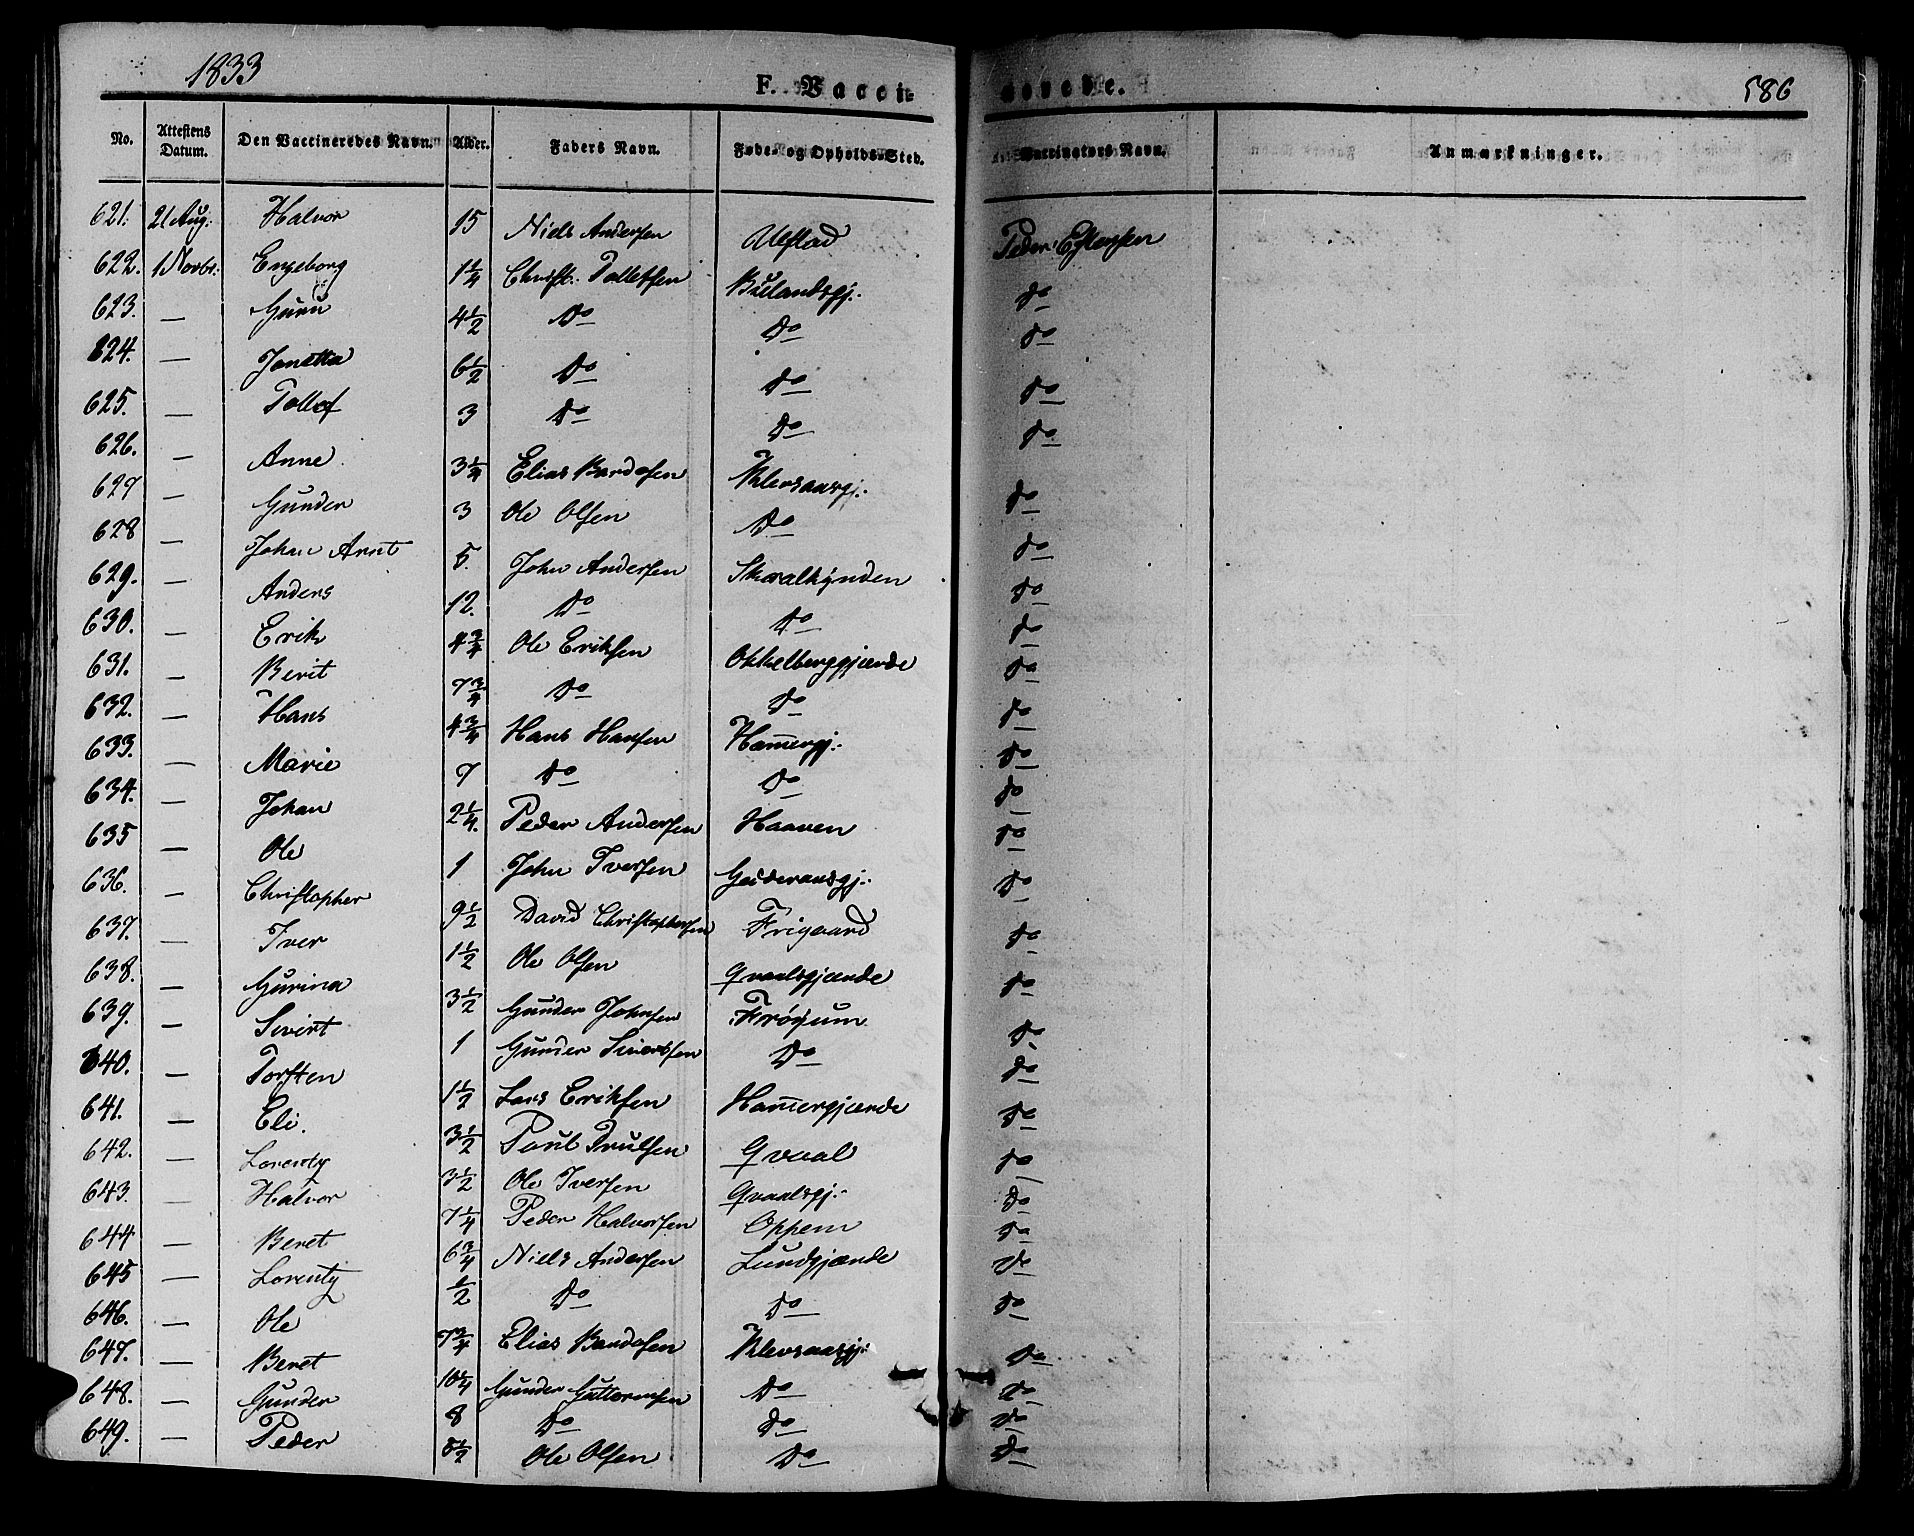 1833
F. Vacci-
nerede.
586
No. Attestens Datum. Den Vaccineredes Navn. Alder. Faders Navn. Føde- og Opholds-Sted. Vaccinators Navn. Anmærkninger.
621. 21 Aug. Halvor 15 Niels Andersen Ulstad Peder
622. 1 Novbr. Engeborg 1 1/4 Christ. Tollefsen Buelandsgj. do
623. — Guru 4 1/2 Do Do do
624. — Jonetta 6 1/2 Do Do do
625. — Tollef 3 Do Do do
626. — Anne 3 1/4 Elias Bardosen Klevsaasgj. do
627 — Gunder 3 Ole Olsen Do do
628 — Johan Arnt 5. John Andersen do
629. — Anders 12. Do Do do
630. — Erik 4 3/4 Ole Eriksen Okkelberggjærde do
631. — Berit 7 3/4 Do Do do
632. — Hans 4 3/4 Hans Hansen Hamergj. do
633. — Marie 7 Do Do do
634. — Johan 2 1/4. Peder Andersen Haaven do
635 — Ole 1 John Iversen do
636. — Christopher 9 1/2 David Christophersen Frigaard do
637. — Iver 1 1/2 Ole Olsen Qvaalsgjærde do
638. — Gurina 3 1/2 Gunder Johnsen Frøsum do
639. — Sivert 1 Gunder Sivertsen Do do
640. — Torsten 1 1/2 Lars Eriksen Hamergjærde do
641. — Eli. 3 1/2 Poul Trulsen Qvaal do
642. — Lorenty 3 1/2 Ole Iversen Qvaalsgj. do
643. — Halvor 7 1/4 Peder Halvorsen Oppem do
644 — Beret 6 3/4 Niels Andersen Lundgjærde do
645 — Lorenty 1/2 Do Do do
646. — Ole 7 3/4 Elias Bardosen Klevsaasgj. do
647. — Beret 10 1/4 Gunder Guttormsen Do do
648. — Gunder 8 Do Do do
649. — Peder 5 1/2 Ole Olsen Do do